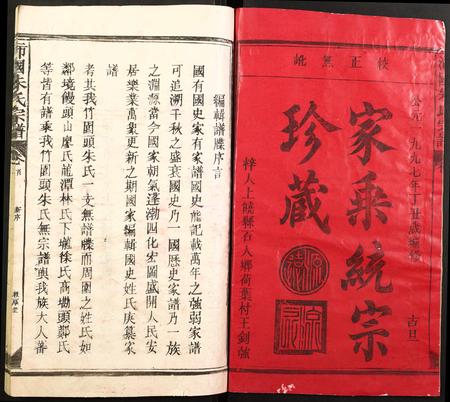 校正無訛
公元一九九七年丁丑歲編修
吉旦
家乘統宗
珍藏
梓人上饒縣石人鄉荷葉村王釗強
編輯譜牒序言
國有國史家有家譜國史能記載萬年之強弱家譜
可追溯千秋之盛衰國史乃一國歷史家譜乃一族
之淵源當今國家朝氣蓬渤四化宏圖盛開人民安
居樂業萬象更新之期國家編輯國史姓氏庚纂家
譜
者其我竹園頭朱氏一支無譜牒而周圍之姓氏如
鄰境饅頭山廖氏龍潭林氏下墟徐氏高塘頭鄭氏
等皆有譜乘我竹園頭朱氏無宗譜與我族大人蕃
沛國朱氏宗譜
卷首
新序